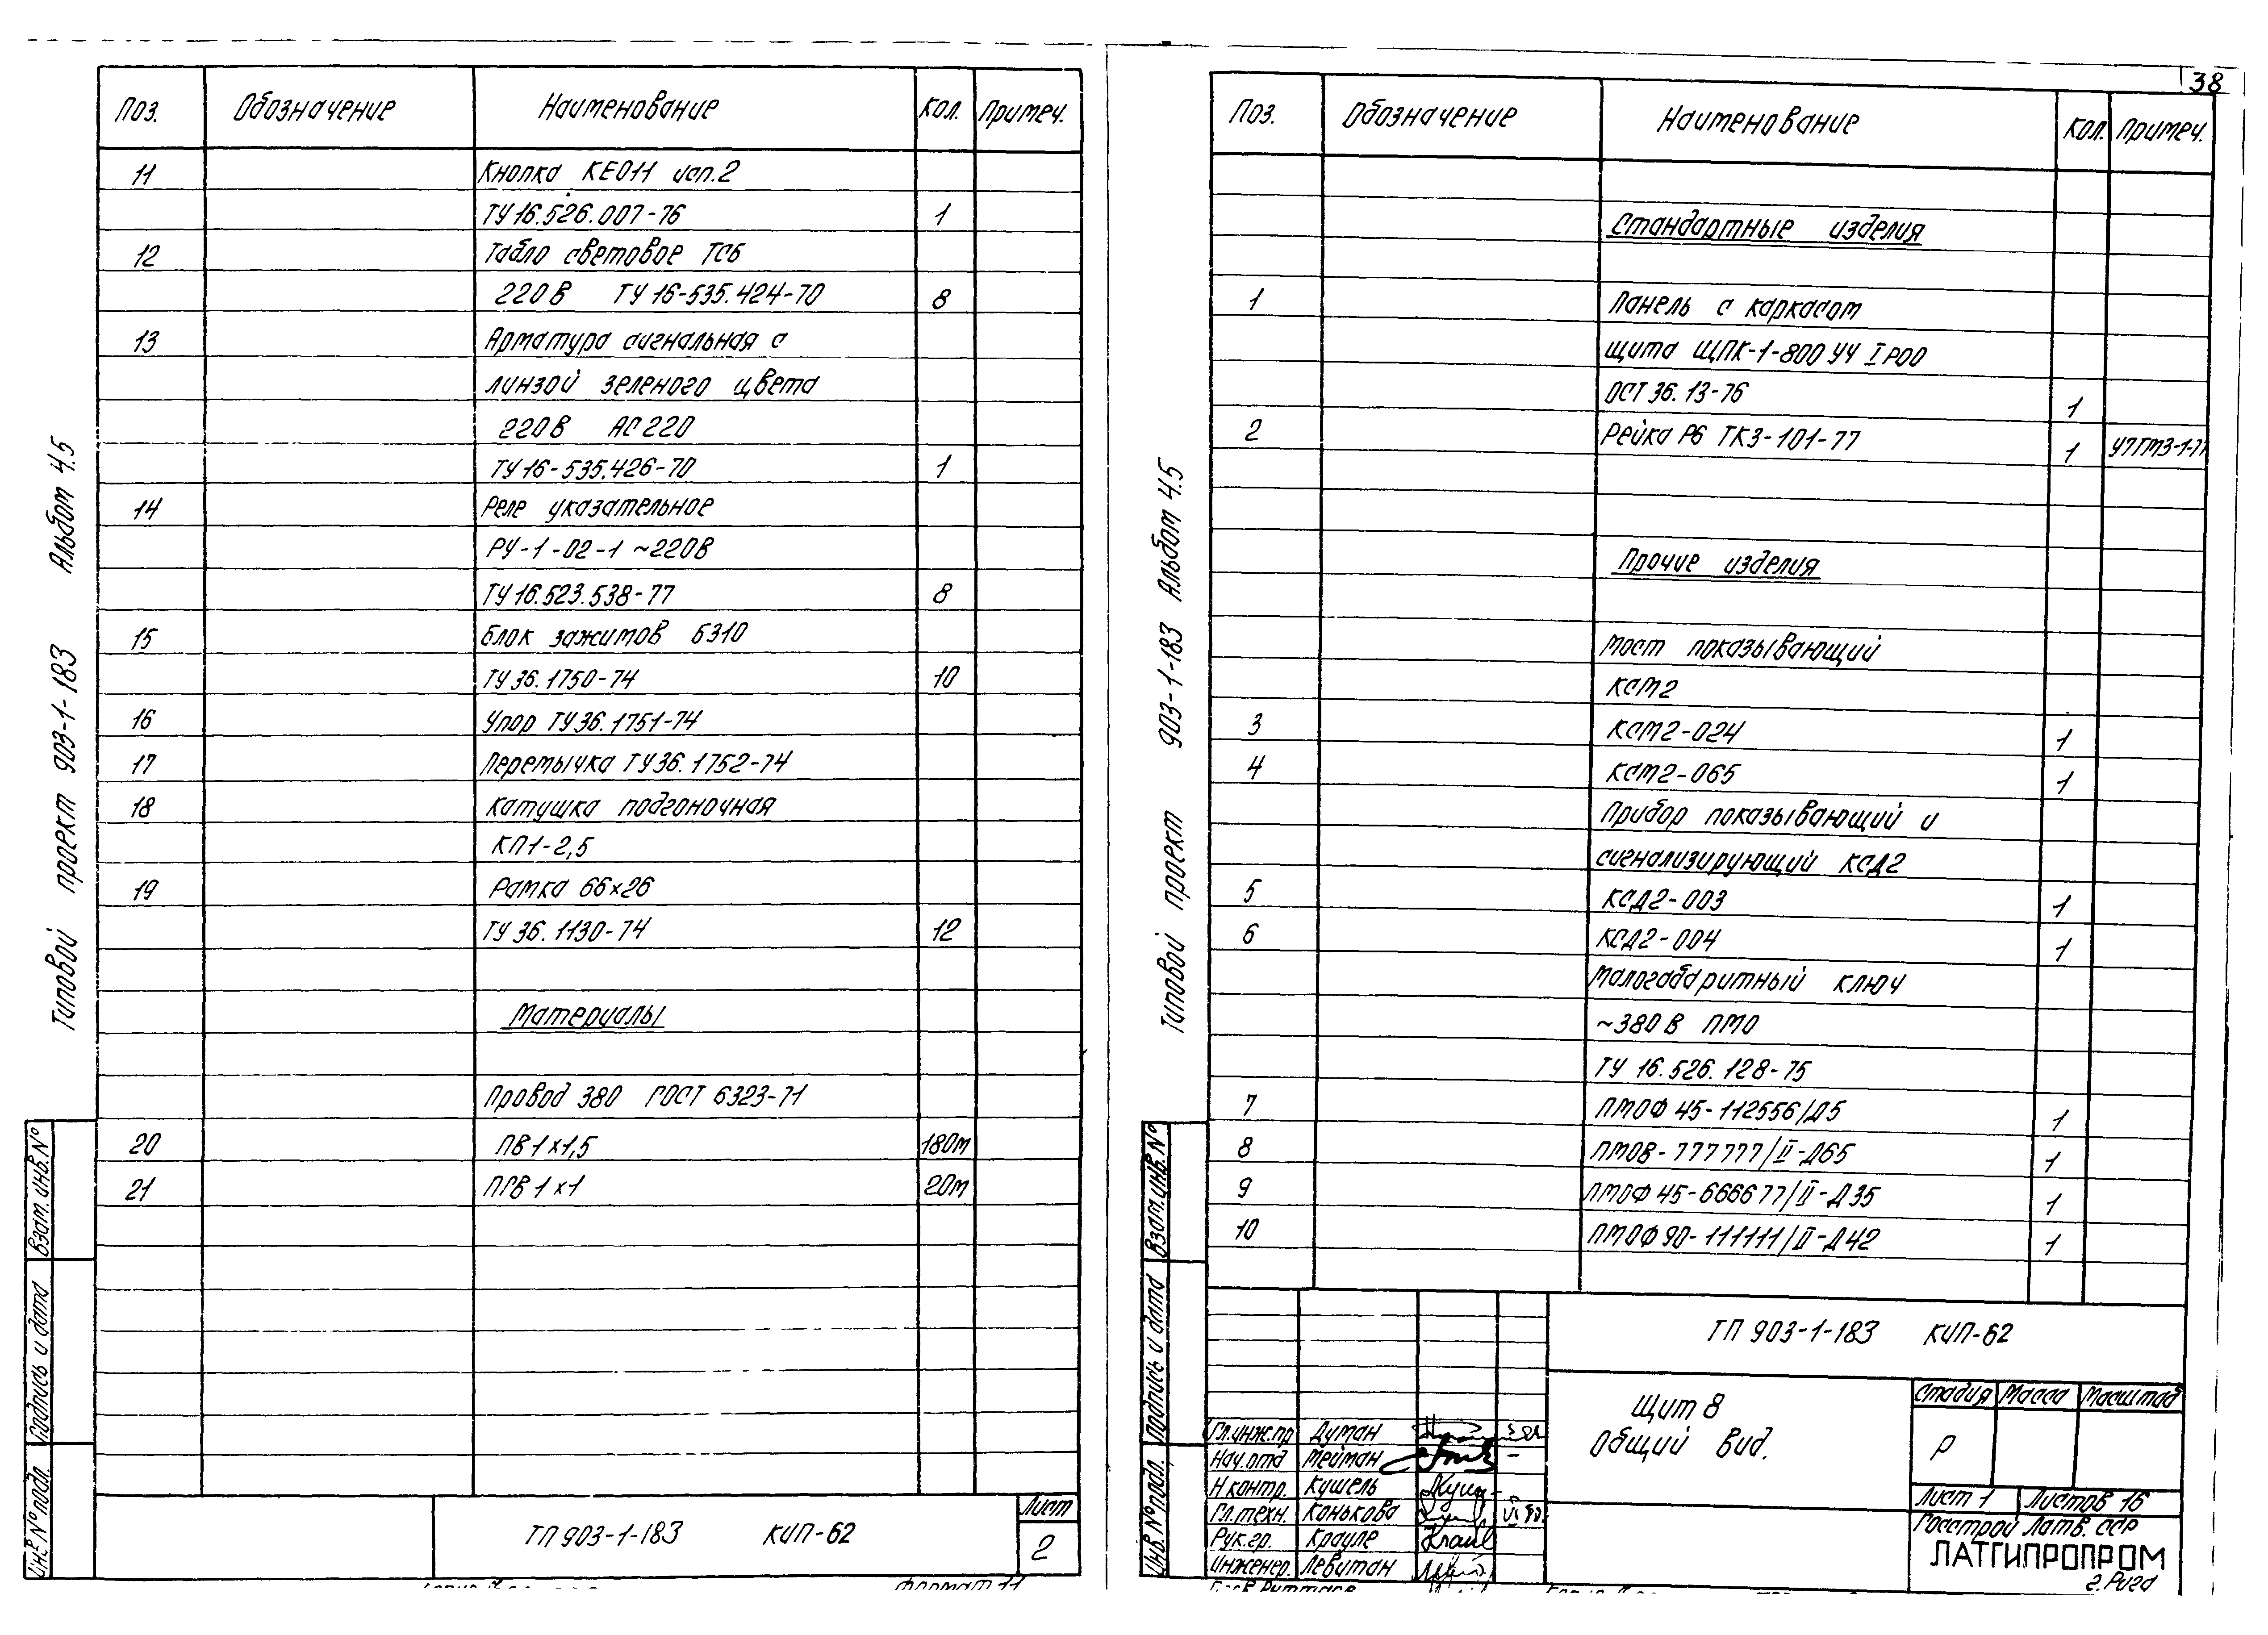 38
Поз. Обозначение Наименование Кол. Примеч.
11 Кнопка КЕ011 исп.2
ТУ16.526.007-76 1
12 Табло световое ТСБ
220В ТУ 16-535.424-70 8
13 Арматура сигнальная с
линзой зеленого цвета
220В АС220
ТУ16-535.426-70 1
14 Реле указательное
РУ-1-02-1 ~220В
ТУ16.523.538-77 8
15 Блок зажимов Б310
ТУ36.1750-74 10
16 Упор ТУ36.1751-74
17 Перемычка ТУ36.1752-74
18 Катушка подгоночная
КП1-2,5
19 Рамка 66х26
ТУ 36.1130-74 12
Материалы
Провод 380 ГОСТ 6323-71
20 ПВ 1х1,5 180м
21 ПГВ 1х1 20м
ТП 903-1-183 КИП-62
Лист
2
Формат 11
Типовой проект 903-1-183 Альбом 4.5
Взам. инв. №
Подпись и дата
Инв. № подл.
Поз. Обозначение Наименование Кол. Примеч.
Стандартные изделия
1 Панель с каркасом
щита ЩПК-1-800 УЧ IР00
ОСТ 36.13-76 1
2 Рейка Р6 ТК3-101-77 1
Прочие изделия
Мост показывающий
КСМ2
3 КСМ2-024 1
4 КСМ2-065 1
Прибор показывающий и
сигнализирующий КСД2
5 КСД2-003 1
6 КСД2-004 1
Малогабаритный ключ
~380 В ПМО
ТУ 16.526.128-75
7 ПМОФ 45-112556/Д5 1
8 ПМОВ-777777/II-Д65 1
9 ПМОФ 45-666677/II-Д35 1
10 ПМОФ90-111111/II-Д42 1
ТП 903-1-183 КИП-62
Щит 8
Общий вид.
Стадия Масса Масштаб
Р
Лист 1 Листов 16
Госстрой Латв. ССР
ЛАТГИПРОПРОМ
г. Рига
Гл.инж.пр Думан
Нач.отд Мейман
Н контр. Кушель
Гл.техн. Конькова
Рук.гр. Крауле
Инженер. Левитан
Типовой проект 903-1-183 Альбом 4.5
Взам. инв. №
Подпись и дата
Инв. № подл.